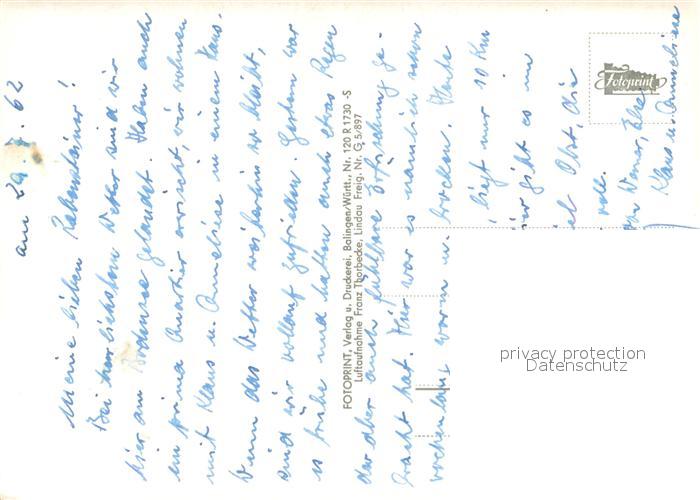 am 29.7.62
Meine lieben Rabensteiner!
Bei herrlichstem Wetter sind wir
hier am Bodensee gelandet. Haben auch
ein prima Quartier erwischt, wir wohnen
mit Klaus u. Anneliese in einem Haus.
Wenn das Wetter weiterhin so bleibt,
sind wir vollauf zufrieden. Gestern war
es trübe und hatten auch etwas Regen
der aber auch fühlbare Abkühlung ge-
bracht hat. Hier war es nämlich schon
wochenlang warm u. trocken.
liegt nur 10 Km
hier gibt es
Obst, die
voll.
Werner, Else
Klaus u. Anneliese
FOTOPRINT, Verlag u. Druckerei, Balingen/Württ., Nr. 120 R 1730 -S
Luftaufnahme Franz Thorbecke, Lindau Freig. Nr. G 5/897
Fotoprint
privacy protection
Datenschutz